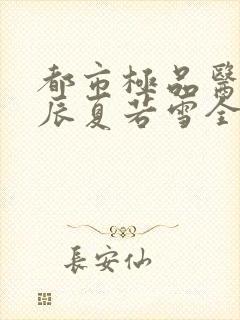 都市極品醫
辰夏若雪全
長安仙